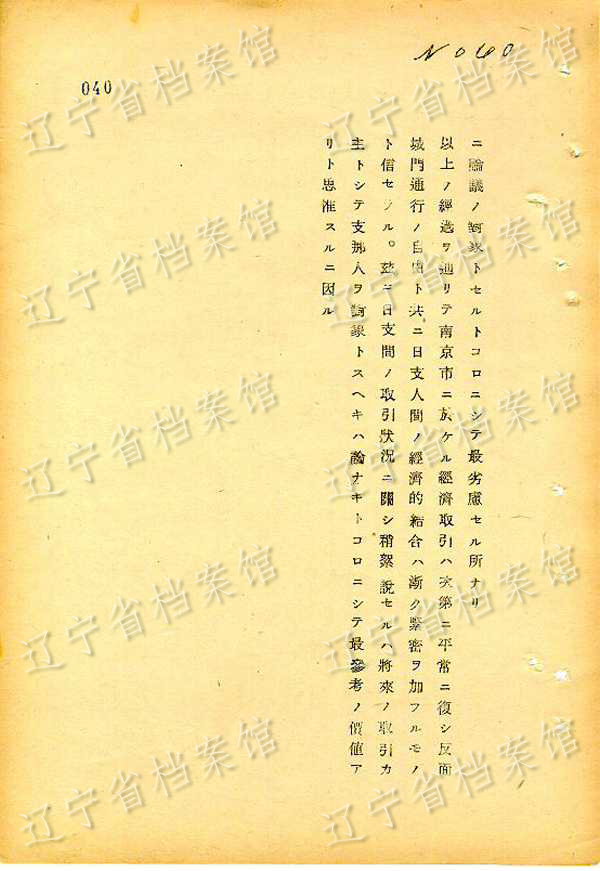 N 040
040
ニ論議ノ對象トセルトコロニシテ最劣慮セル所ナリ
以上ノ經過ヲ辿リテ南京市ニ於ケル經濟取引ハ次第ニ平常ニ復シ反面
城門通行ノ自由ト共ニ日支人間ノ經濟的結合ハ漸ク緊密ヲ加フルモノ
ト信セラル。茲ニ日支間ノ取引狀況ニ關シ稍絮說セルハ將來ノ取引カ
主トシテ支那人ヲ對象トスヘキハ論ナキトコロニシテ最參考ノ價値ア
リト思准スルニ因ル
辽宁省档案馆
辽宁省档案馆
辽宁省档案馆
辽宁省档案馆
辽宁省档案馆
辽宁省档案馆
辽宁省档案馆
辽宁省档案馆
辽宁省档案馆
辽宁省档案馆